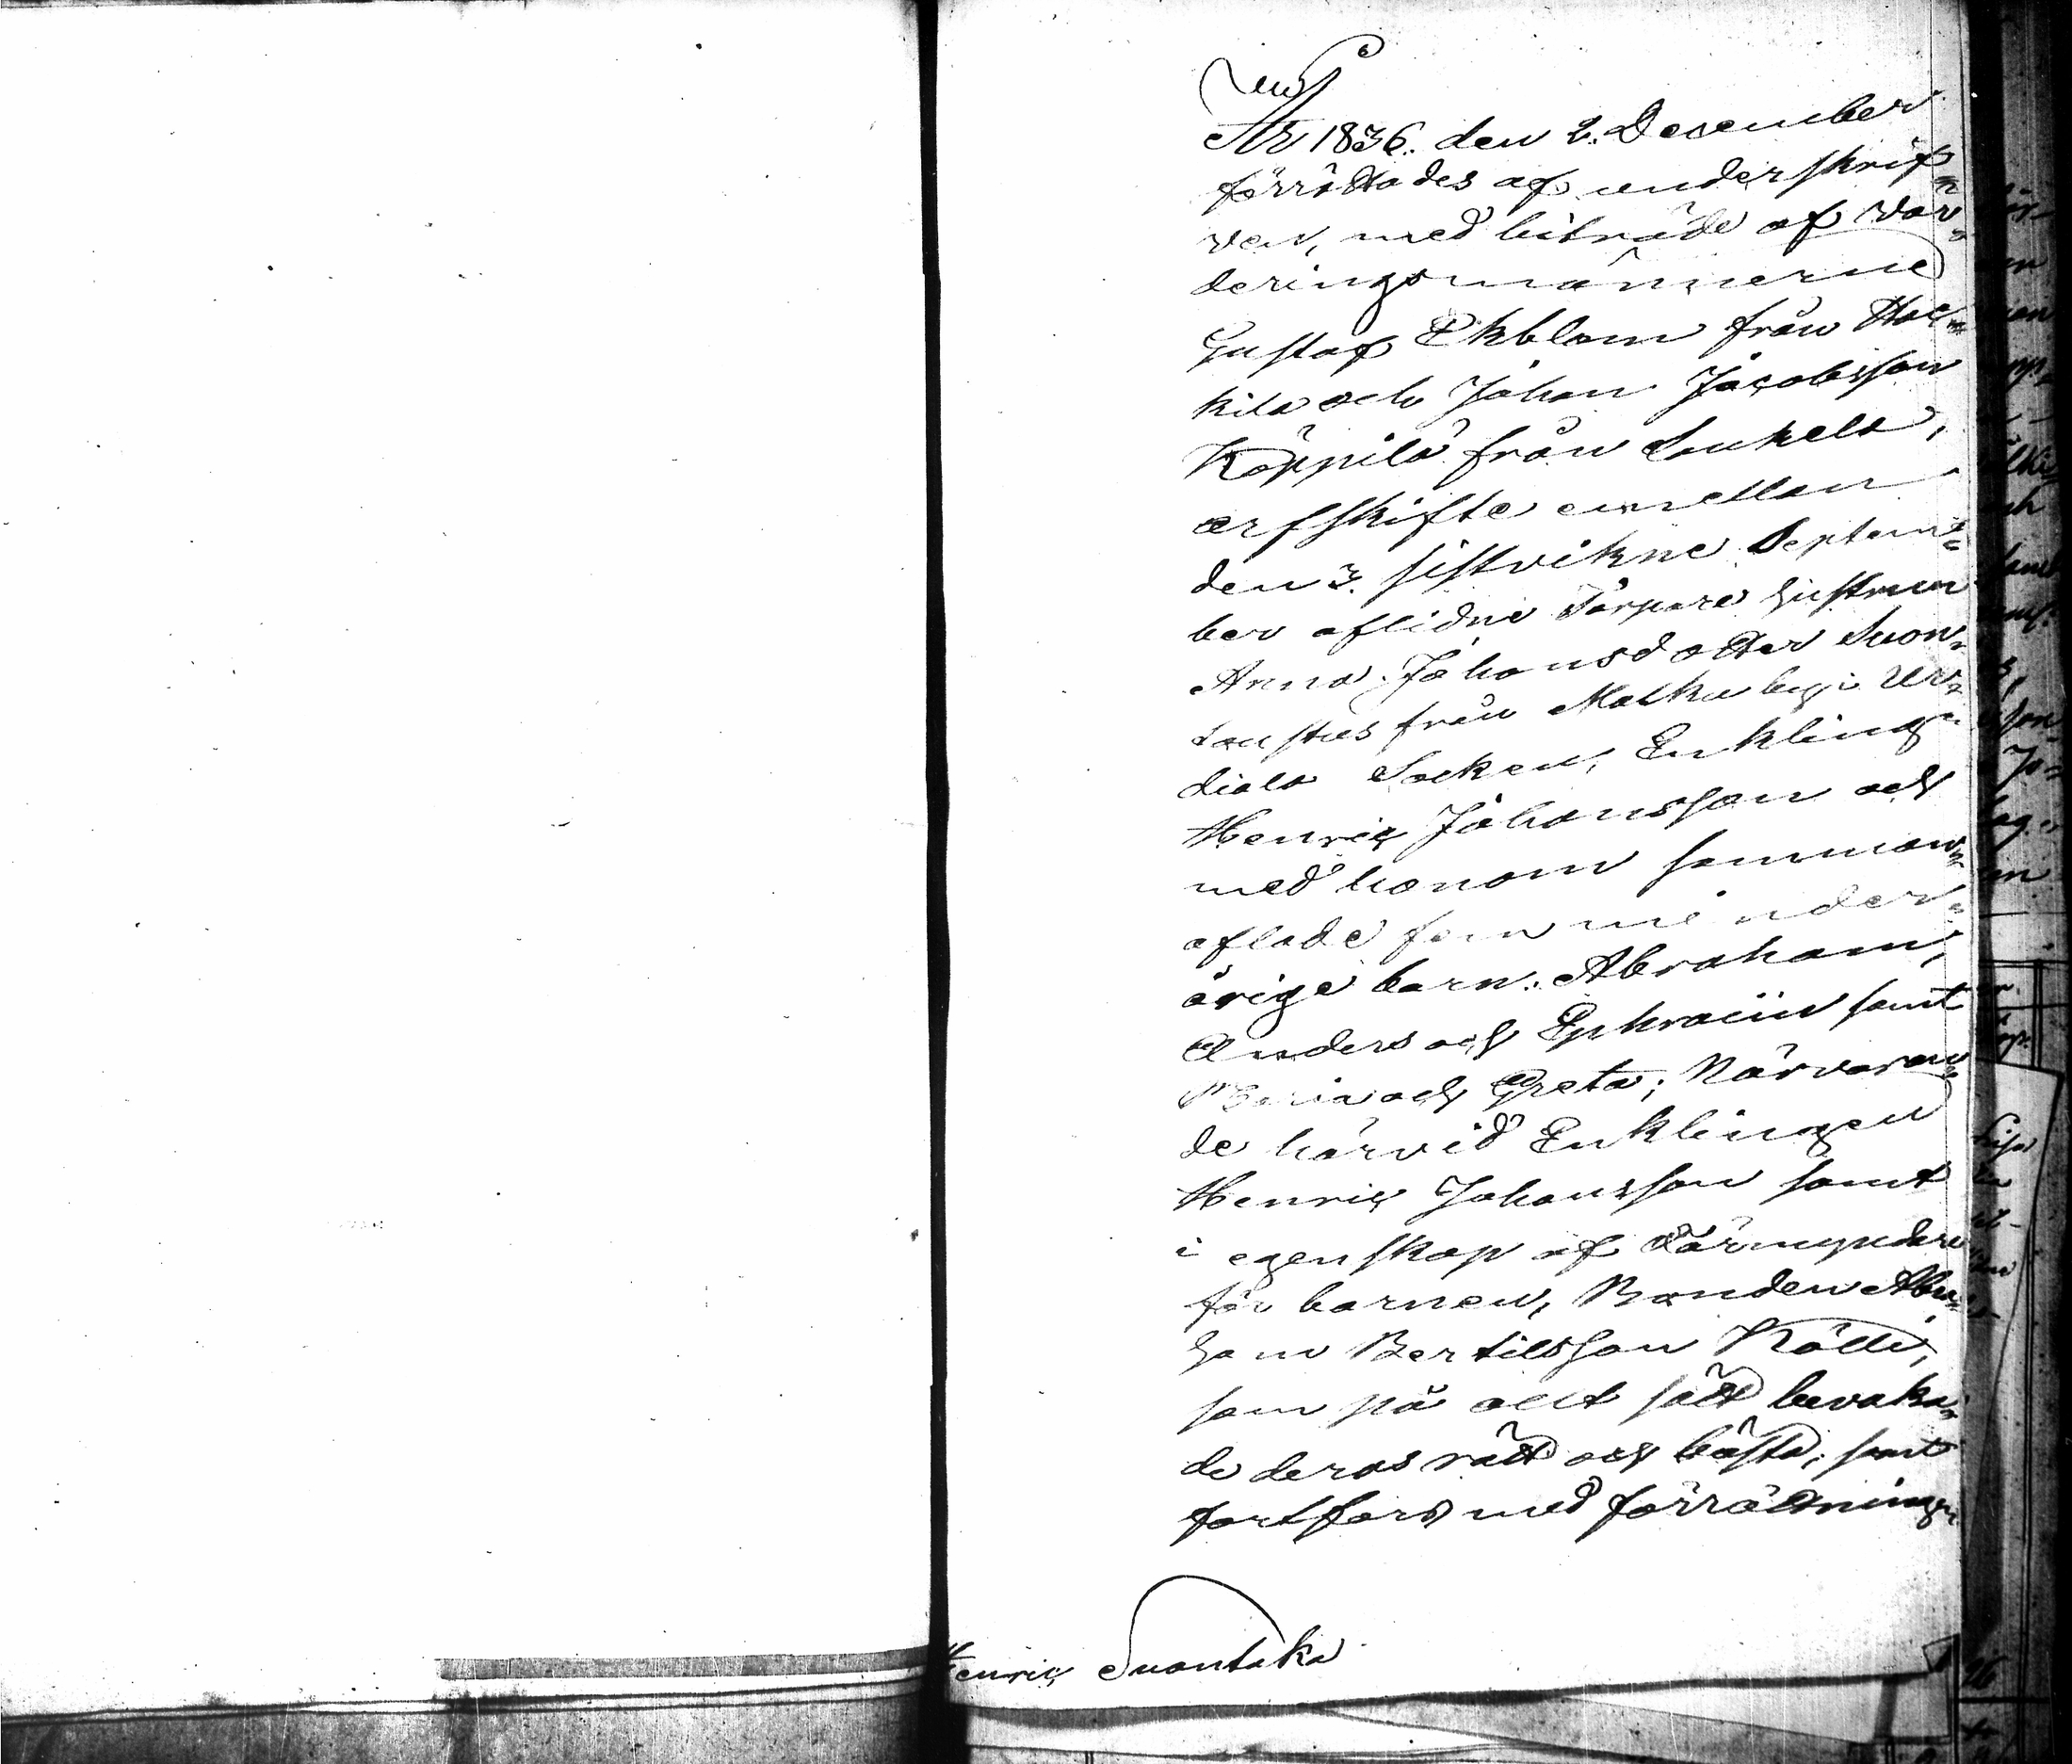 År 1836. den 2. December
förrättades af underskrif-
ven, med biträde af Vär-
deringsmännerne
Gustaf Ekblom från Hac-
kila och Johan Jacobsson
Köppilä från Suukela,
arfskifte emellan
den 3. sistvikne Septem-
ber aflidne Torpare hustrun
Anna Johansdotter Suon-
taustas från Malku by i Ur-
diala Socken, Enkling
Henric Johansson och
med honom samman-
aflade fem minder-
årige barn: Abraham,
Anders och Ephraim samt
Maria och Greta; Närvaran-
de härvid Enklingen
Henric Johansson samt
i egenskap af Förmyndare
för barnen, Bonden Abra-
ham Bertilsson Kölli,
som på allt sätt bevaka-
de deras rätt och bästa; samt
fortfors med förrättningen
Henric Suontaka